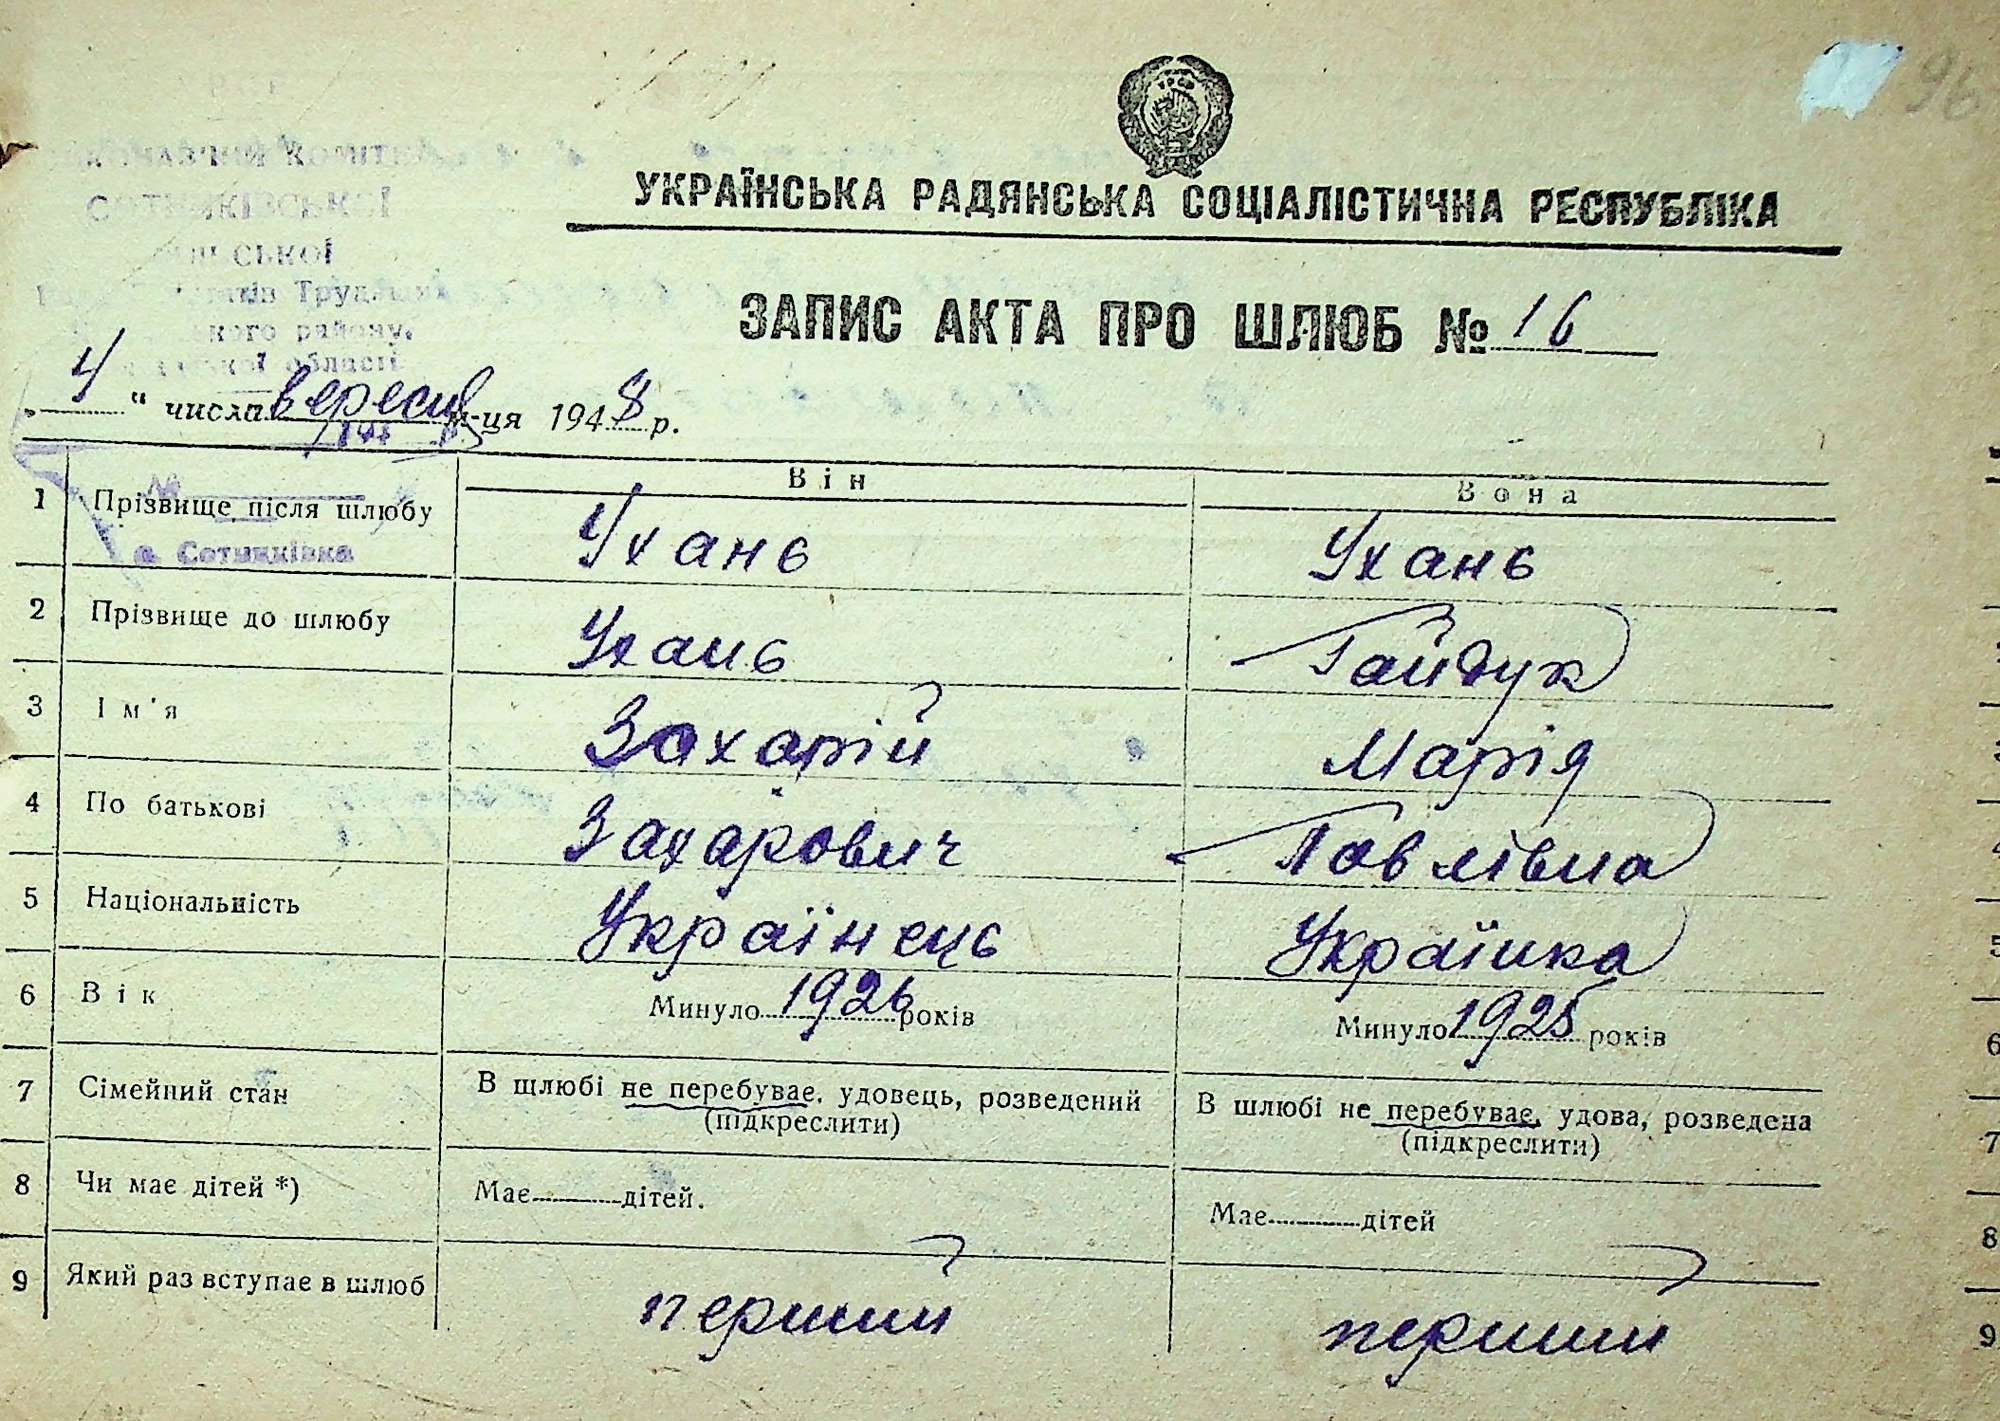 96
УРСР
УКРАЇНСЬКА РАДЯНСЬКА СОЦІАЛІСТИЧНА РЕСПУБЛІКА
КОМІТЕТ
СОТНИКІВСЬКОЇ
Трудящих
району,
області
ЗАПИС АКТА ПРО ШЛЮБ № 16
„4“ числа вересня м-ця 1948 р.
№
с Сотниківка
Він Вона
1 Прізвище після шлюбу Ухань Ухань
2 Прізвище до шлюбу Ухань Гайдук
3 Ім'я Захарій Марія
4 По батькові Захарович Павлівна
5 Національність Українець Українка
6 Вік Минуло 1926 років Минуло 1925 років
7 Сімейний стан В шлюбі не перебуває, удовець, розведений (підкреслити) В шлюбі не перебуває, удова, розведена (підкреслити)
8 Чи має дітей *) Має дітей. Має дітей
9 Який раз вступає в шлюб перший перший
5
6
7
8
9